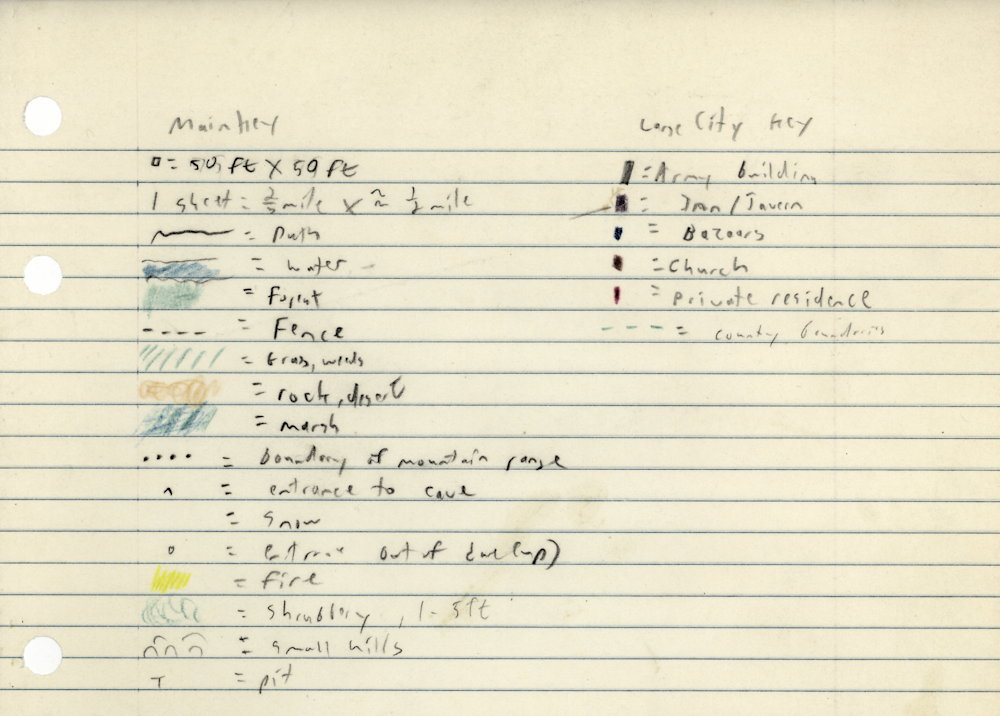 Main key
▫ = 50 ft X 50 ft
1 sheet = mile X ≈ 1/2 mile
= Path
= water
= Forest
= Fence
= Grass, weeds
= rock, desert
= marsh
= boundary of mountain range
^ = entrance to cave
= Snow
o = entrance out of
= fire
= Shrubbery, 1-5ft
= small hills
T = pit
Large City Key
= Army building
= Inn/Tavern
= Bazaars
= Church
= private residence
= county boundaries